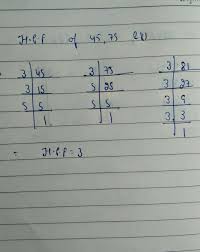 H.C.F of 45, 75
3 | 45 3 | 75 3 | 81
3 | 15 5 | 25 3 | 27
5 | 5 5 | 5 3 | 9
1 1 3 | 3
1
= H.C.F = 3